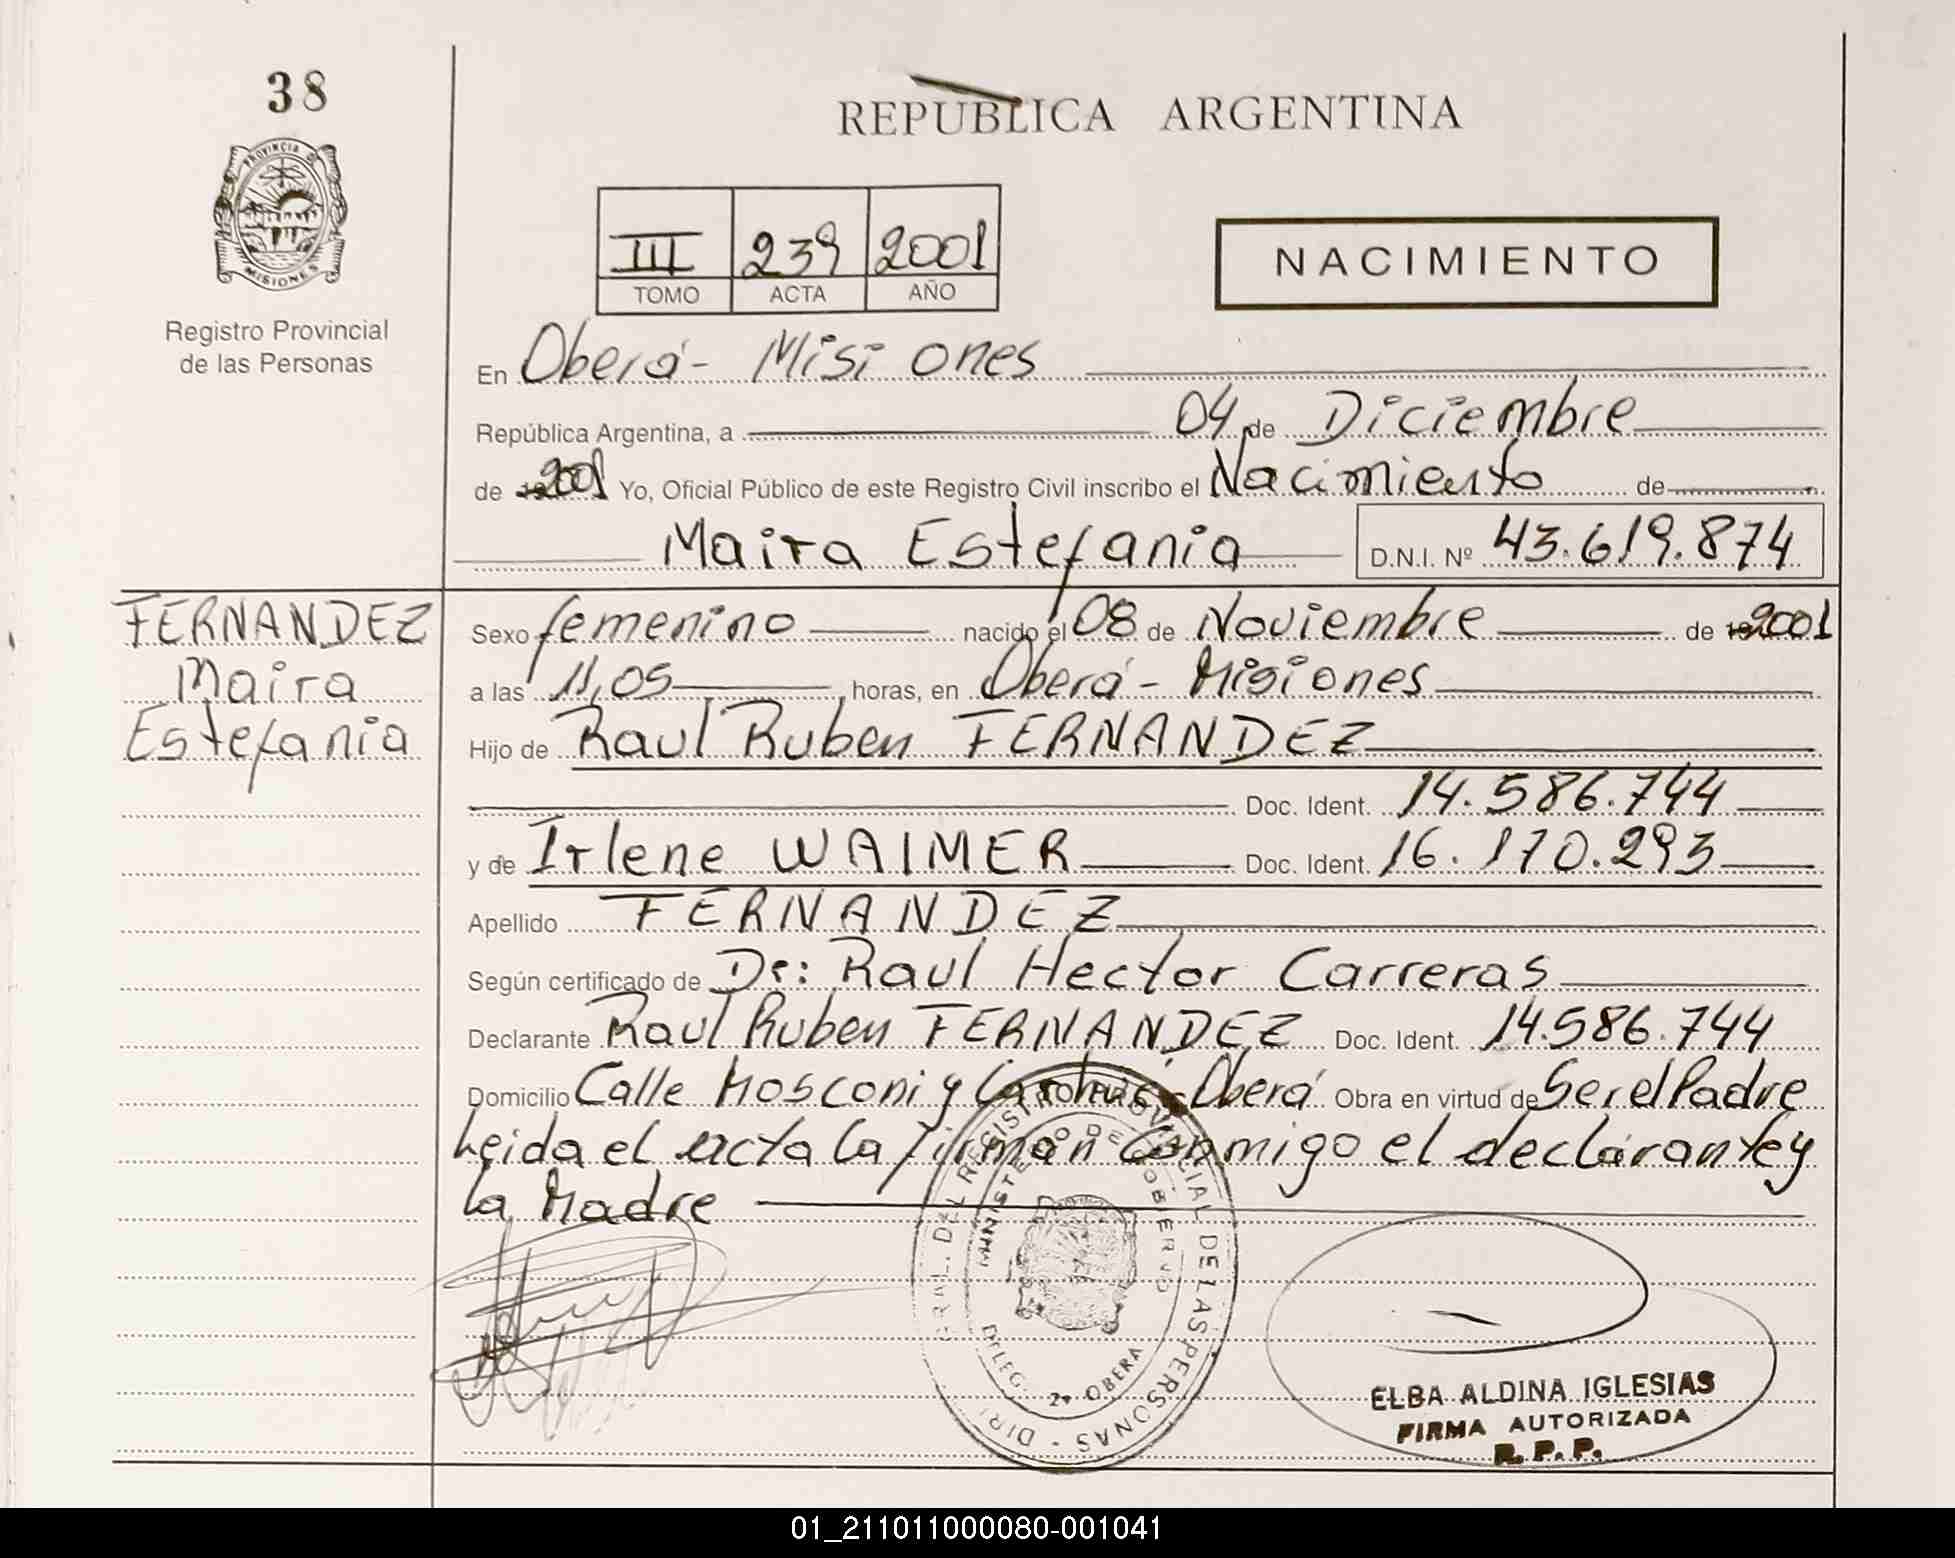 38
PROVINCIA D
MISIONES
Registro Provincial
de las Personas
REPUBLICA ARGENTINA
III 239 2001
TOMO ACTA AÑO
NACIMIENTO
En Oberá - Misiones
República Argentina, a 04 de Diciembre
de 2001 Yo, Oficial Público de este Registro Civil inscribo el Nacimiento de
Maira Estefania D.N.I. Nº 43.619.874
FERNANDEZ
Maira
Estefania
Sexo femenino nacido el 08 de Noviembre de 2001
a las 11,05 horas, en Oberá - Misiones
Hijo de Raul Ruben FERNANDEZ
Doc. Ident. 14.586.744
y de Irlene WAIMER Doc. Ident. 16.170.293
Apellido FERNANDEZ
Según certificado de Dr: Raul Hector Carreras
Declarante Raul Ruben FERNANDEZ Doc. Ident. 14.586.744
Domicilio Calle Mosconi y Oberá Obra en virtud de Ser el Padre
Leida el acta la firman conmigo el declarante y
la Madre
DEL REGISTRO PROVINCIAL DE LAS PERSONAS - DIR
MINISTERIO DE GOBIERNO
DELEG. 2ª OBERA
ELBA ALDINA IGLESIAS
FIRMA AUTORIZADA
R.P.P.
01_211011000080-001041